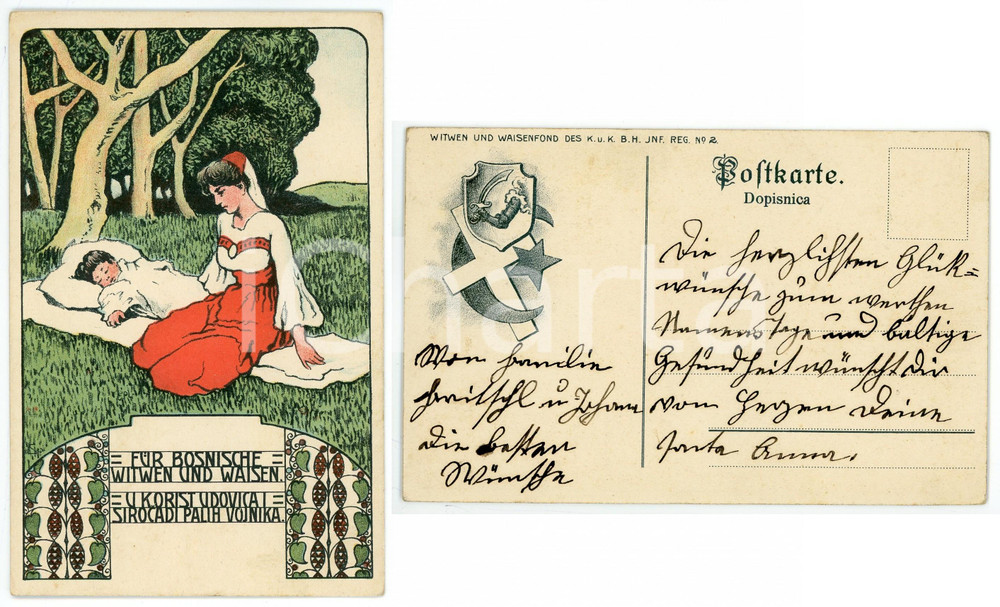 FÜR BOSNISCHE
WITWEN UND WAISEN.
U KORIST UDOVICA I
SIROČADI PALIH VOJNIKA.
WITWEN UND WAISENFOND DES K.u.K. B.H. JNF. REG. No 2.
Postkarte.
Dopisnica
Die herzlichsten Glük=
wünsche zum werthen
Namenstage und baltige
Gesundheit wünscht Dir
von Herzen Deine
Tante Anna.
Von Familie
Fritschl u Johann
die besten
Wünsche
Charta